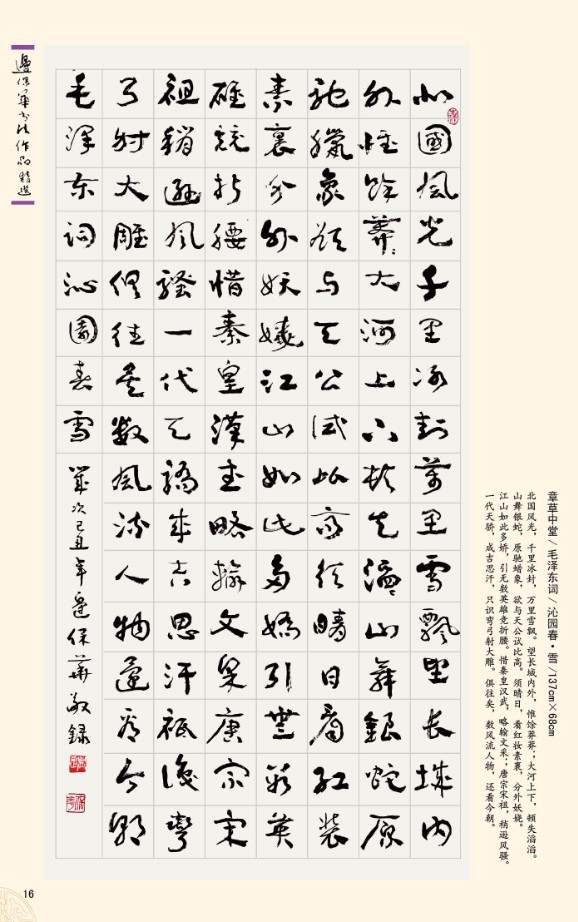 章草中堂/毛泽东词/沁园春·雪/137cm×68cm
北国风光，千里冰封，万里雪飘。望长城内外，惟馀莽莽；大河上下，顿失滔滔。
山舞银蛇，原驰蜡象，欲与天公试比高。须晴日，看红妆素裹，分外妖娆。
江山如此多娇，引无数英雄竞折腰。惜秦皇汉武，略输文采；唐宗宋祖，稍逊风骚。
一代天骄，成吉思汗，只识弯弓射大雕。俱往矣，数风流人物，还看今朝。
北國風光千里冰封萬里雪飄望長城内
外惟餘莽莽大河上下頓失滔滔山舞銀蛇原
馳臘象欲与天公試比高須晴日看紅裝
素裹分外妖嬈江山如此多嬌引無數英
雄競折腰惜秦皇漢武略輸文采唐宗宋
祖稍遜風騷一代天驕成吉思汗衹識彎
弓射大雕俱往矣數風流人物還看今朝
毛泽东词沁園春雪
歲次己丑年邊保華敬録
邊保華書法作品精選
16